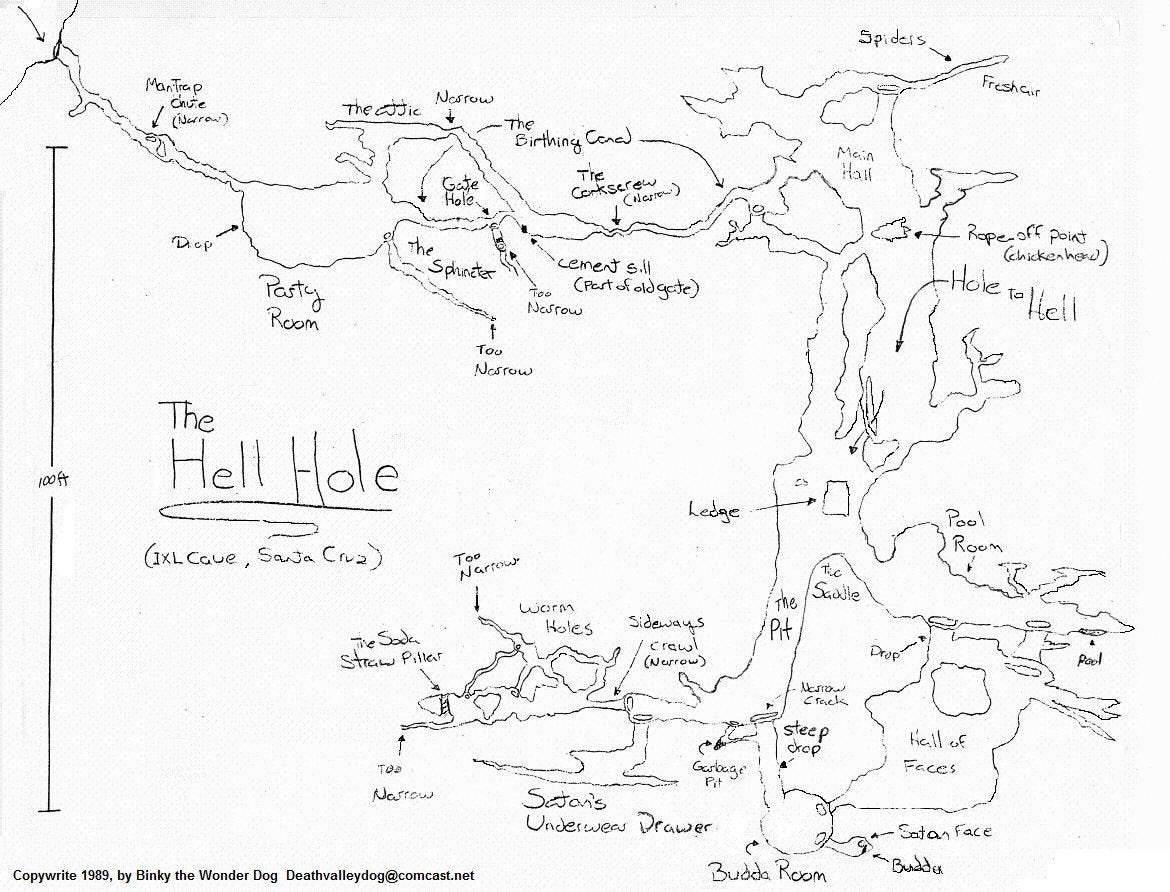 Spiders
Freshair
ManTrap
Chute
(Narrow)
The attic
Narrow
The
Birthing Canal
Main
Hall
The
Corkscrew
(Narrow)
Gate
Hole
Rope off point
(chickenhead)
Drop
The
Sphincter
cement sill
(Part of old gate)
Too
Narrow
Hole To Hell
Party
Room
Too
Narrow
The
Hell Hole
(IXL Cave, Santa Cruz)
100ft
Ledge
Pool
Room
Too
Narrow
Worm
Holes
The
Saddle
The
Pit
Sideways
Crawl
(Narrow)
The Soda
Straw Pillar
Drop
Pool
Narrow
Crack
steep
drop
Hall of
Faces
Garbage
Pit
Too
Narrow
Satan's
Underwear Drawer
Satan Face
Budda
Budda Room
Copywrite 1989, by Binky the Wonder Dog Deathvalleydog@comcast.net